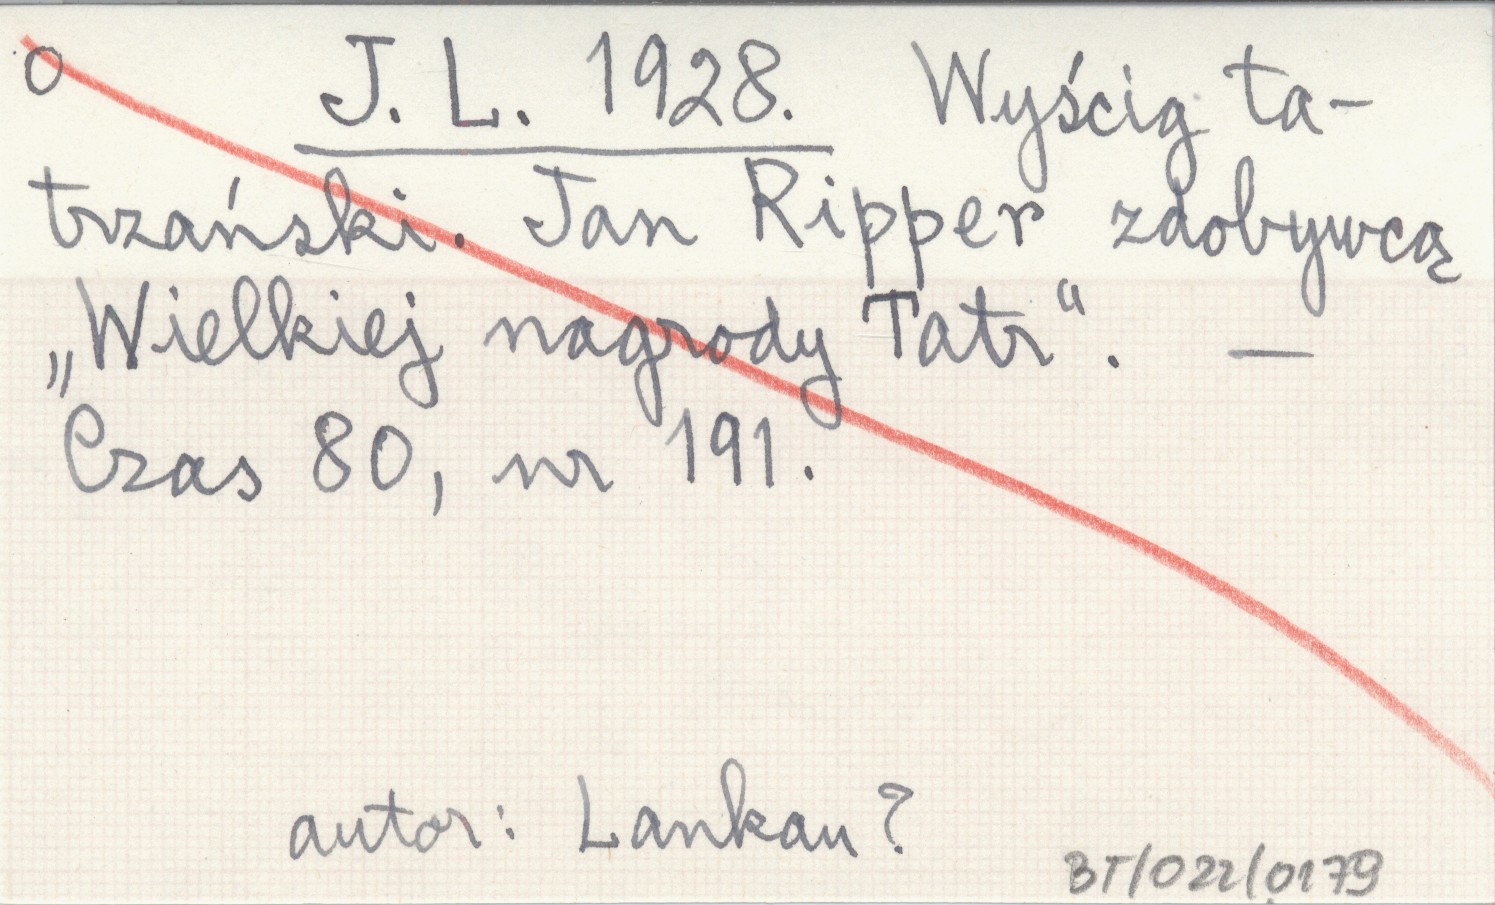 O J. L. 1928. Wyścig ta-
trzański. Jan Ripper zdobywcą
„Wielkiej nagrody Tatr". —
Czas 80, nr 191.
autor: Lankau?
BT/022/0179